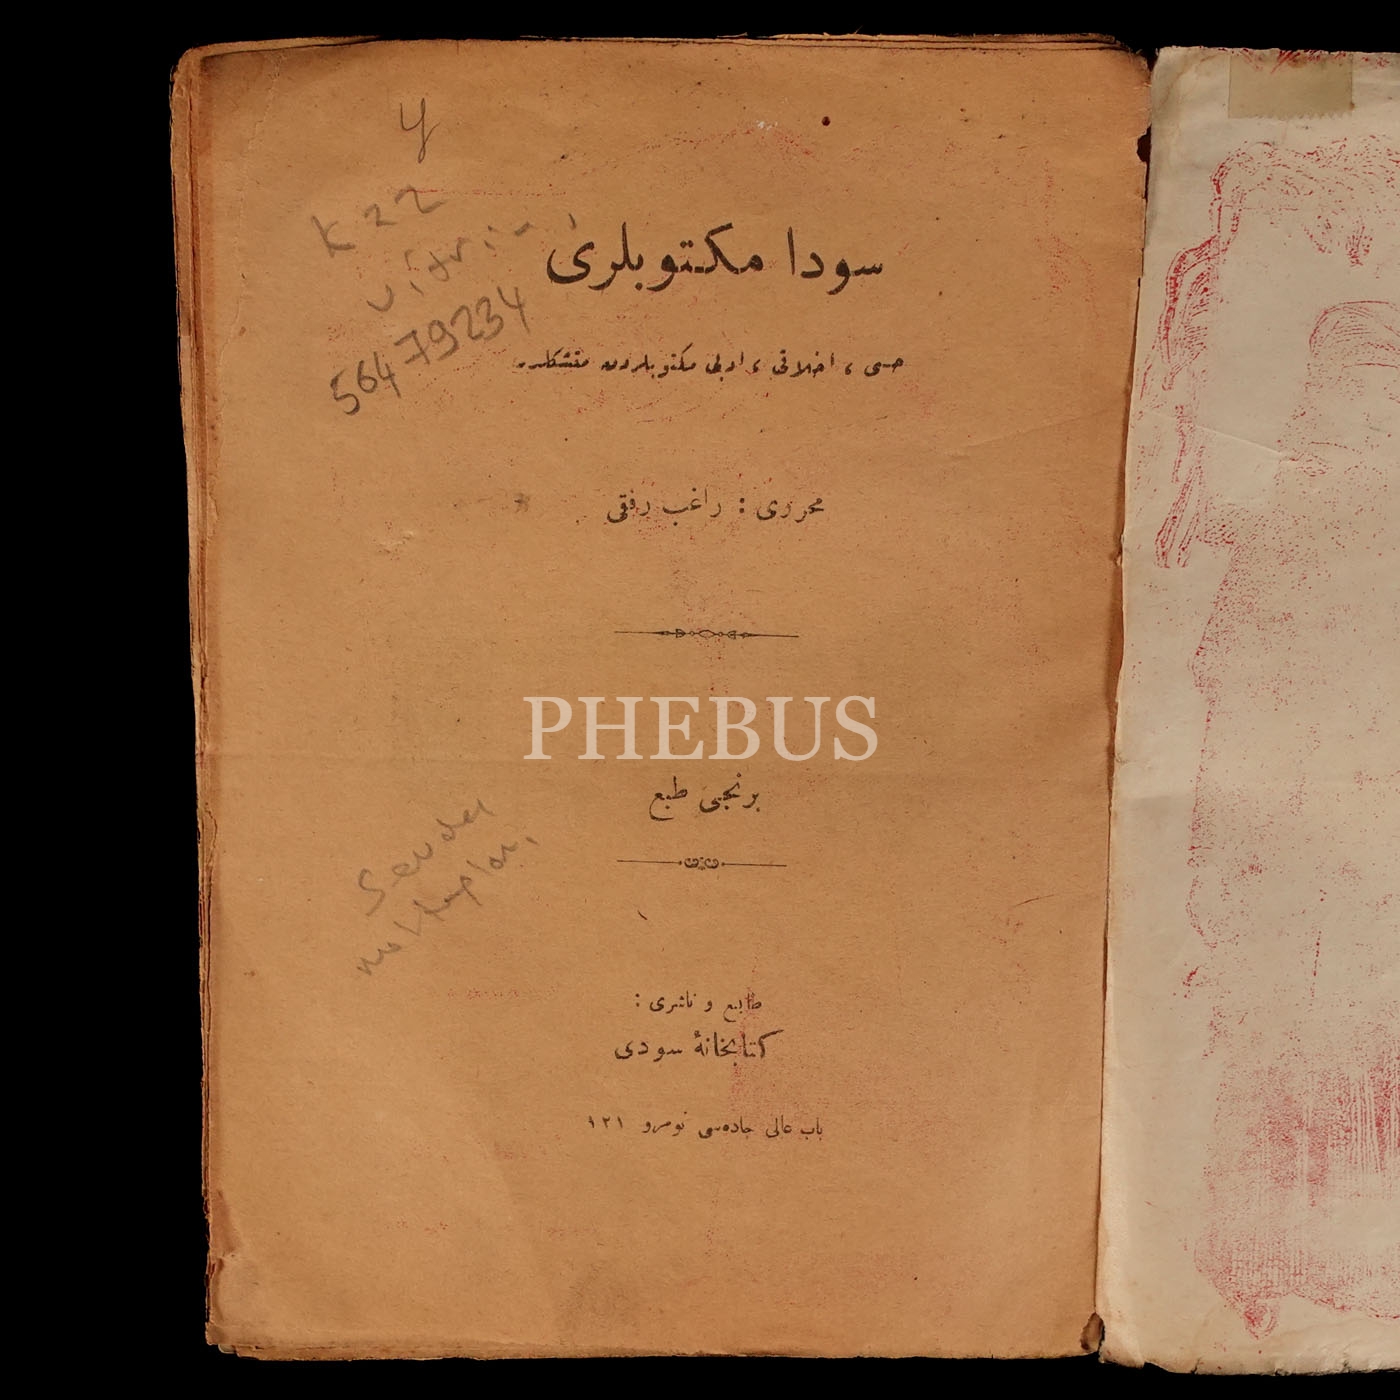 y
K22
56479234
سودا مكتوبلری
حسی ، اخلاقی ، ادبی مكتوبلردن متشكلدر
محرری : راغب رفقی
PHEBUS
برنجی طبع
Sevda
mektupları
طابع و ناشری :
كتابخانهٔ سودی
باب عالی جاده‌سی نومرو ۱۲۱